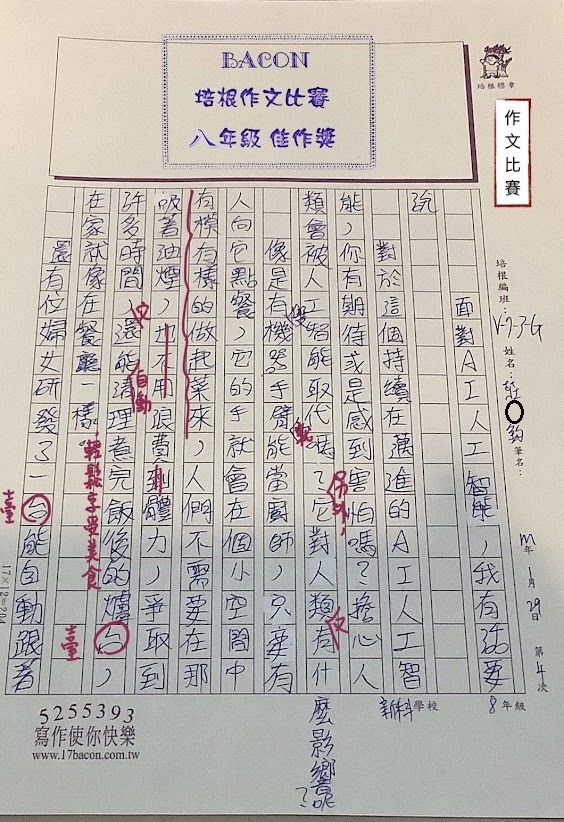 BACON
培根作文比賽
八年級 佳作獎
培根標章
作文比賽
培根編班：V-7-J-G
姓名：
筆名：
年1月29日 第4次
學校 8年級
面對AI人工智能，我有話要
說
對於這個持續在邁進的AI人工智
能，你有期待或是感到害怕嗎？擔心人
類會被人工智能取代嗎？它對人類有什
麼影響呢？
另外，
像是有機器手臂能當廚師，只要有
人向它點餐，它的手就會在個小空間中
有模有樣的做起菜來，人們不需要在那
吸著油煙，也不用浪費到體力，爭取到
自動
許多時間，還能清理煮完飯後的爐台，
臺
在家就像在餐廳一樣。
輕鬆享受美食
還有位婦女研發了一台能自動跟著
臺
17×12=204
5255393
寫作使你快樂
www.17bacon.com.tw